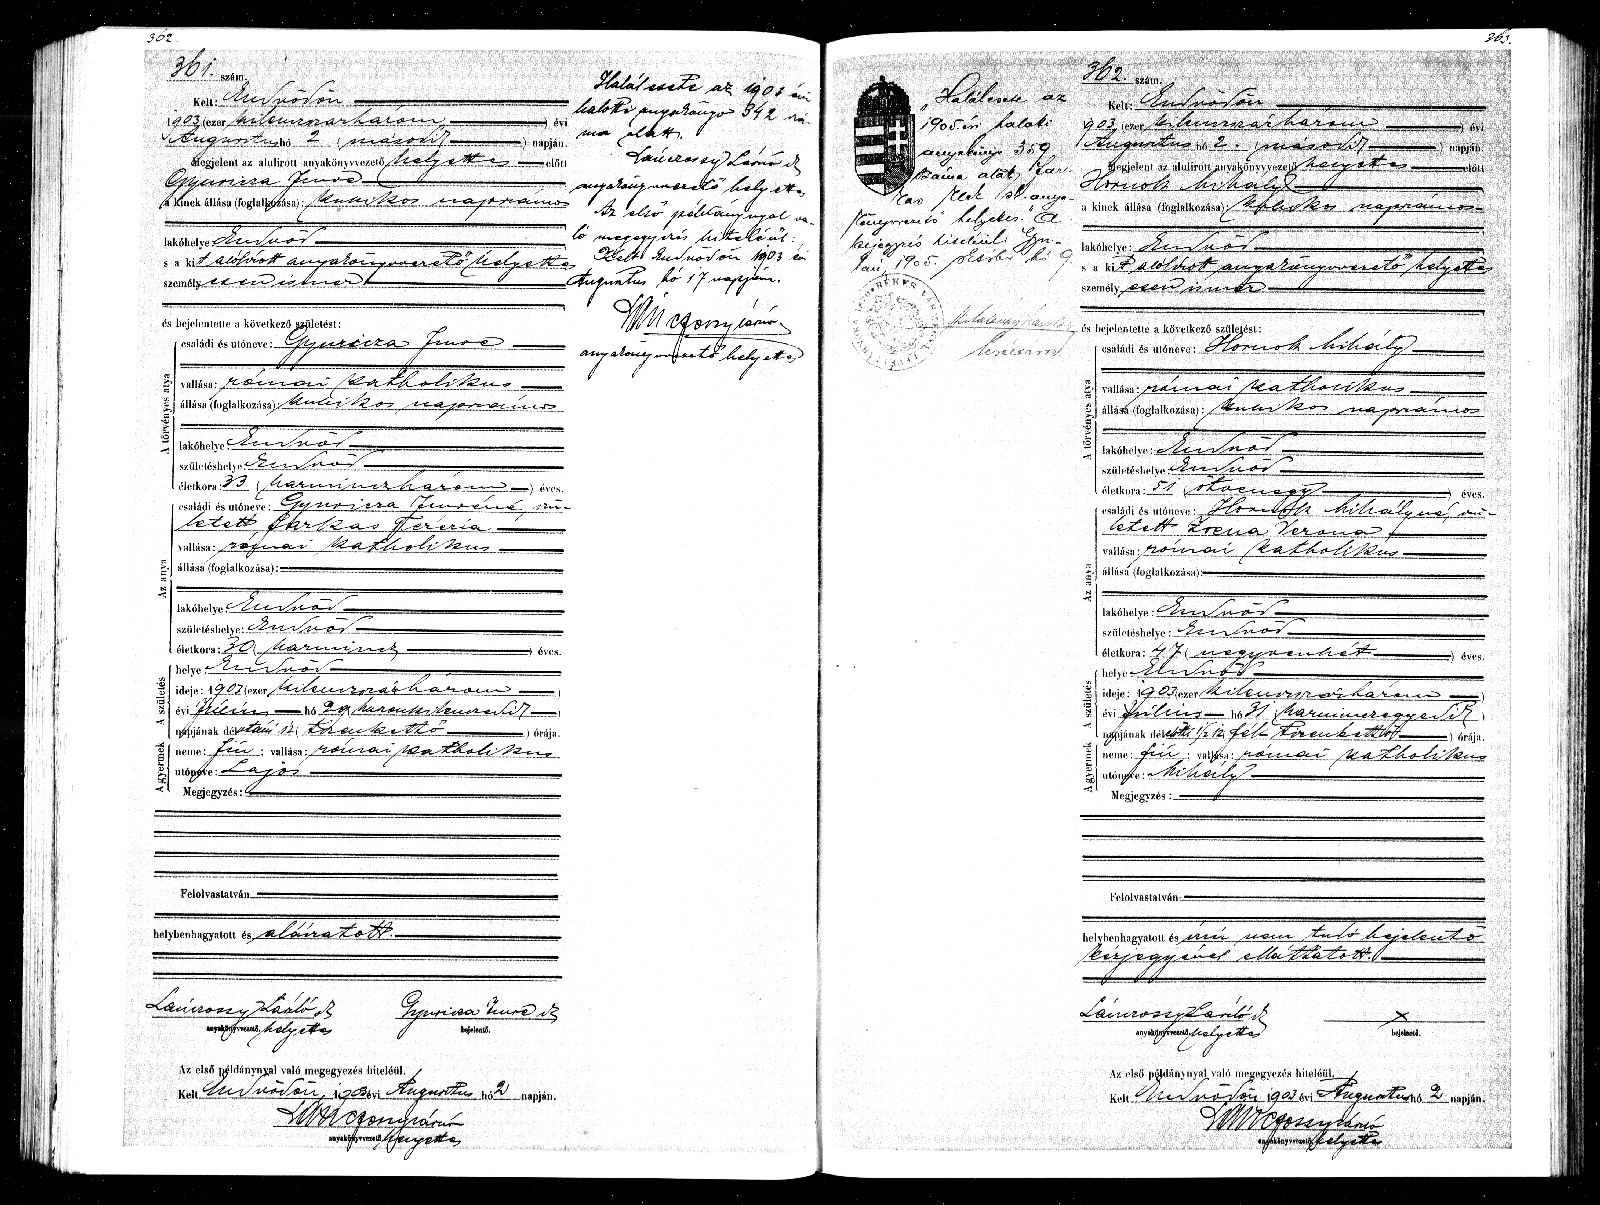 362.
361. szám.
Kelt: Endrődön
1903 (ezer kilenczszázhárom) évi
Augusztus hó 2 (második) napján.
Megjelent az alulirott anyakönyvvezető helyettes előtt
Gyuricza Imre
a kinek állása (foglalkozása): kubikos napszámos
lakóhelye Endrőd
s a kit alólirott anyakönyvvezető helyettes
személyesen ismer
és bejelentette a következő születést:
A törvényes atya
családi és utóneve: Gyuricza Imre
vallása: római katholikus
állása (foglalkozása) kubikos napszámos
lakóhelye Endrőd
születéshelye Endrőd
életkora: 33 (harminczhárom) éves.
Az anya
családi és utóneve: Gyuricza Imréné, szü-
letett Farkas Terézia
vallása: római katholikus
állása (foglalkozása):
lakóhelye: Endrőd
születéshelye: Endrőd
életkora: 30 (harmincz) éves.
A születés
helye Endrőd
ideje: 1903 (ezer kilenczszázhárom)
évi július hó 29 (huszonkilenczedik)
napjának délutáni 12 (tizenkettő) órája.
A gyermek
neme: fiú; vallása: római katholikus
utóneve: Lajos
Megjegyzés:
Felolvastatván
helybenhagyatott és aláiratott.
László Gyuricza Imre
anyakönyvvezető. helyettes bejelentő.
Az első példánynyal való megegyezés hiteléül.
Kelt Endrődön, 1903 évi Augusztus hó 2 napján.
anyakönyvvezető. helyettes
Halálesete az 1903 évi
halotti anyakönyv 342 szá-
ma alatt.
László
anyakönyvvezető helyettes
Az első példánynyal va-
ló megegyezés hiteléül:
Kelt Endrődön 1903 évi
Augusztus hó 17 napján.
anyakönyvvezető helyettes
363.
"Halálesete az
1905 évi halotti
anyakönyv 359
száma alatt. Far-
kas Elek sk. anya-
könyvvezető helyettes. A
bejegyzés hiteléül. Gyu-
lán, 1905. hó 9.
BÉKÉS
362. szám.
Kelt: Endrődön
1903 (ezer kilenczszázhárom) évi
Augusztus hó 2. (második) napján
Megjelent az alulirott anyakönyvvezető helyettes előtt
Hornok Mihály
a kinek állása (foglalkozása): kubikos napszámos
lakóhelye: Endrőd
s a kit alólirott anyakönyvvezető helyettes
személyesen ismer
és bejelentette a következő születést:
A törvényes atya
családi és utóneve: Hornok Mihály
vallása: római katholikus
állása (foglalkozása): kubikos napszámos
lakóhelye: Endrőd
születéshelye Endrőd
életkora: 51 (ötvenegy) éves.
Az anya
családi és utóneve: Hornok Mihályné, szü-
letett Verona
vallása: római katholikus
állása (foglalkozása):
lakóhelye: Endrőd
születéshelye: Endrőd
életkora: 47 (negyvenhét) éves.
A születés
helye: Endrőd
ideje: 1903 (ezer kilenczszázhárom)
évi július hó 31 (harminczegyedik)
napjának délelőtti 1/2 12 (fél tizenkettő) órája.
A gyermek
neme: fiú; vallása: római katholikus
utóneve: Mihály
Megjegyzés:
Felolvastatván
helybenhagyatott és irni nem tudó bejelentő
kézjegyével elláttatott.
László x
anyakönyvvezető. helyettes bejelentő.
Az első példánynyal való megegyezés hiteléül.
Kelt Endrődön 1903 évi Augusztus hó 2 napján.
anyakönyvvezető. helyettes